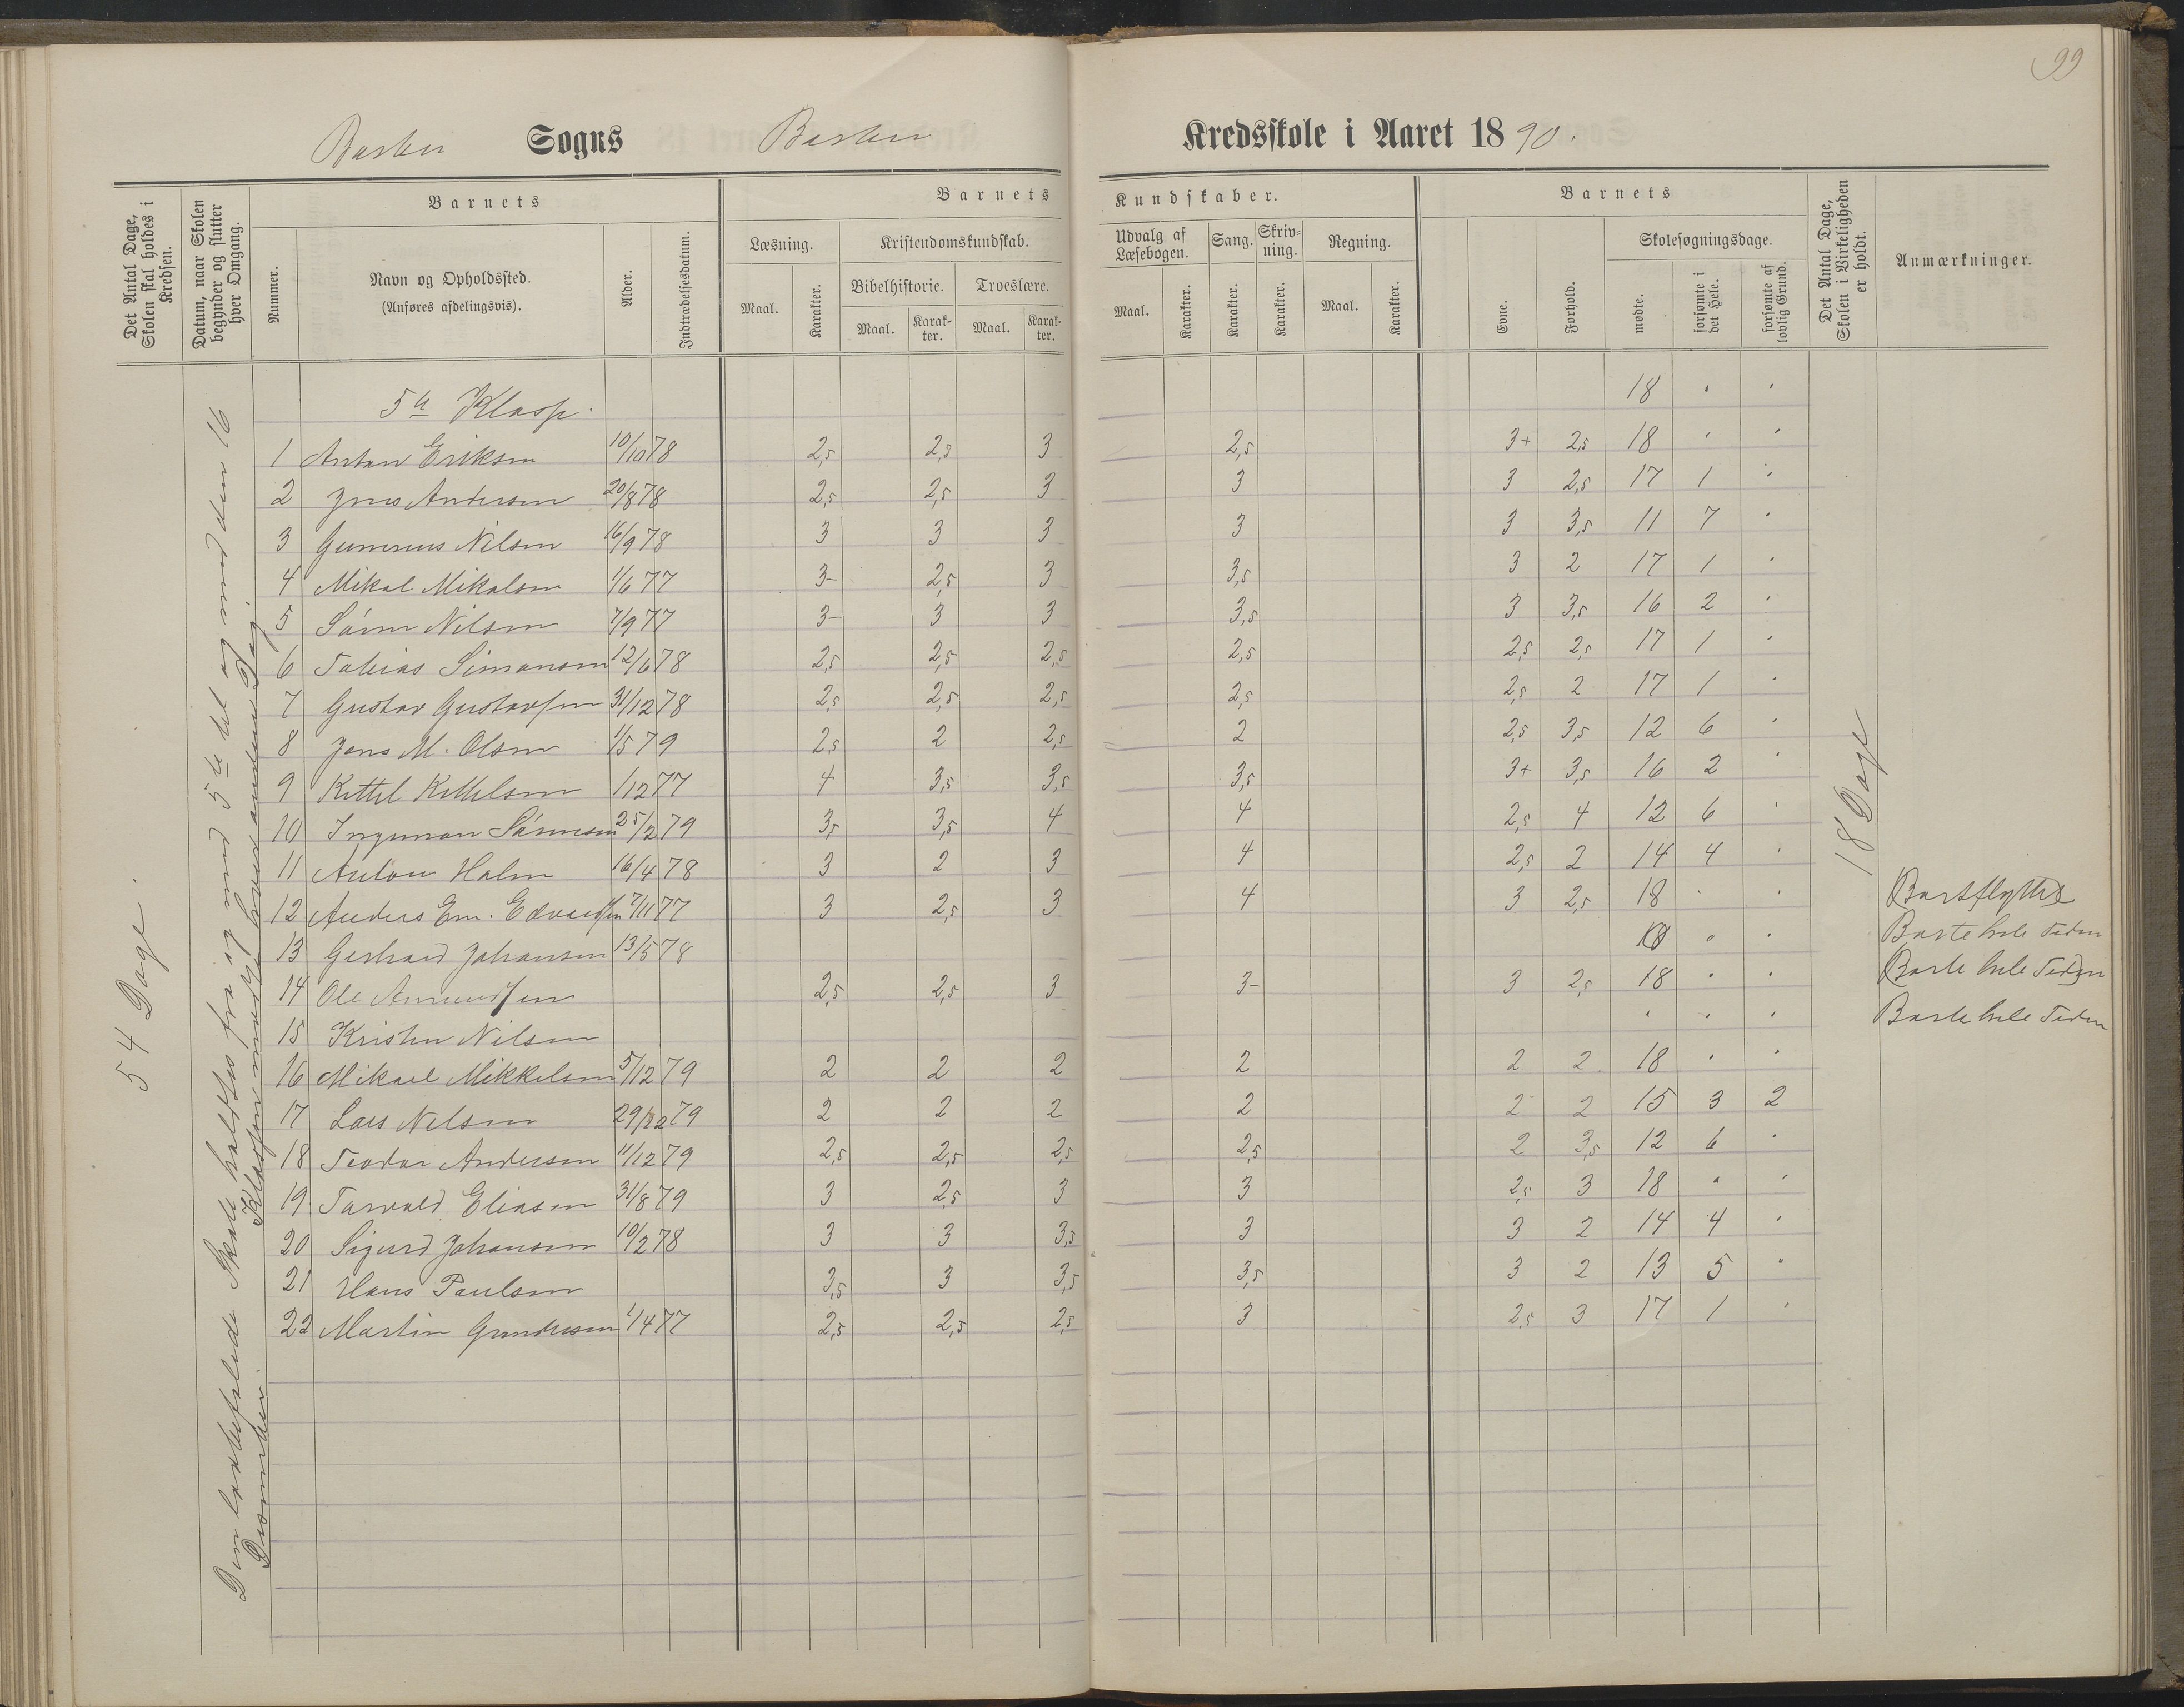 99
Barbu Sogns Barbu Kredsskole i Aaret 1890.
Det Antal Dage, Skolen skal holdes i Kredsen.
Datum, naar Skolen begynder og slutter hver Omgang.
Barnets
Nummer.
Navn og Opholdssted.
(Anføres afdelingsvis).
Alder.
Indtrædelsesdatum.
Barnets Kundskaber.
Læsning.
Maal. Karakter.
Kristendomskundskab.
Bibelhistorie. Troeslære.
Maal. Karakter. Maal. Karakter.
Udvalg af Læsebogen.
Maal. Karakter.
Sang.
Karakter.
Skrivning.
Karakter.
Regning.
Maal. Karakter.
Barnets
Evne. Forhold.
Skolesøgningsdage.
mødte. forsømte i det Hele. forsømte af lovlig Grund.
Det Antal Dage, Skolen i Virkeligheden er holdt.
Anmærkninger.
54 Dage.
Den lovbefalede Skole holdtes fra og med 5te til og med den 16
Klassen mødte hver anden Dag.
December.
18 Dage
5te Klasse. 18 " "
1 Anton Eriksen 10/10 78 2,5 2,5 3 2,5 3+ 2,5 18 " "
2 Jens Andersen 20/8 78 2,5 2,5 3 3 3 2,5 17 1 "
3 Gunerius Nilsen 16/9 78 3 3 3 3 3 3,5 11 7 "
4 Mikal Mikalsen 1/6 77 3- 2,5 3 3,5 3 2 17 1 "
5 Sørn Nilsen 7/9 77 3- 3 3 3,5 3 3,5 16 2 "
6 Tobias Simonsen 12/6 78 2,5 2,5 2,5 2,5 2,5 2,5 17 1 "
7 Gustav Gustavsen 31/12 78 2,5 2,5 2,5 2,5 2,5 2 17 1 "
8 Jens M. Olsen 1/5 79 2,5 2 2,5 2 2,5 3,5 12 6 "
9 Kittil Kittelsen /12 77 4 3,5 3,5 3,5 3+ 3,5 16 2 "
10 Ingeman Sørensen 25/2 79 3,5 3,5 4 4 2,5 4 12 6 "
11 Anton Holm 16/4 78 3 2 3 4 2,5 2 14 4 "
12 Anders Em. Edvardsen 7/11 77 3 2,5 3 4 3 2,5 18 " " Bortflyttet
13 Gerhard Johansen 13/5 78 " " Borte hele Tiden
14 Ole Amundsen 2,5 2,5 3 3- 3 2,5 18 " " Borte hele Tiden
15 Kristen Nilsen " " " Borte hele Tiden
16 Mikael Mikkelsen 5/12 79 2 2 2 2 2 2 18 " "
17 Lars Nelsen 29/12 79 2 2 2 2 2 2 15 3 2
18 Teodor Andersen 11/12 79 2,5 2,5 2,5 2,5 2 3,5 12 6 "
19 Torvald Eliasen 31/8 79 3 2,5 3 3 2,5 3 18 " "
20 Sigurd Johansen 10/2 78 3 3 3,5 3 3 2 14 4 "
21 Hans Paulsen 3,5 3 3,5 3,5 3 2 13 5 "
22 Martin Gundersen 1/4 77 2,5 2,5 2,5 3 2,5 3 17 1 "